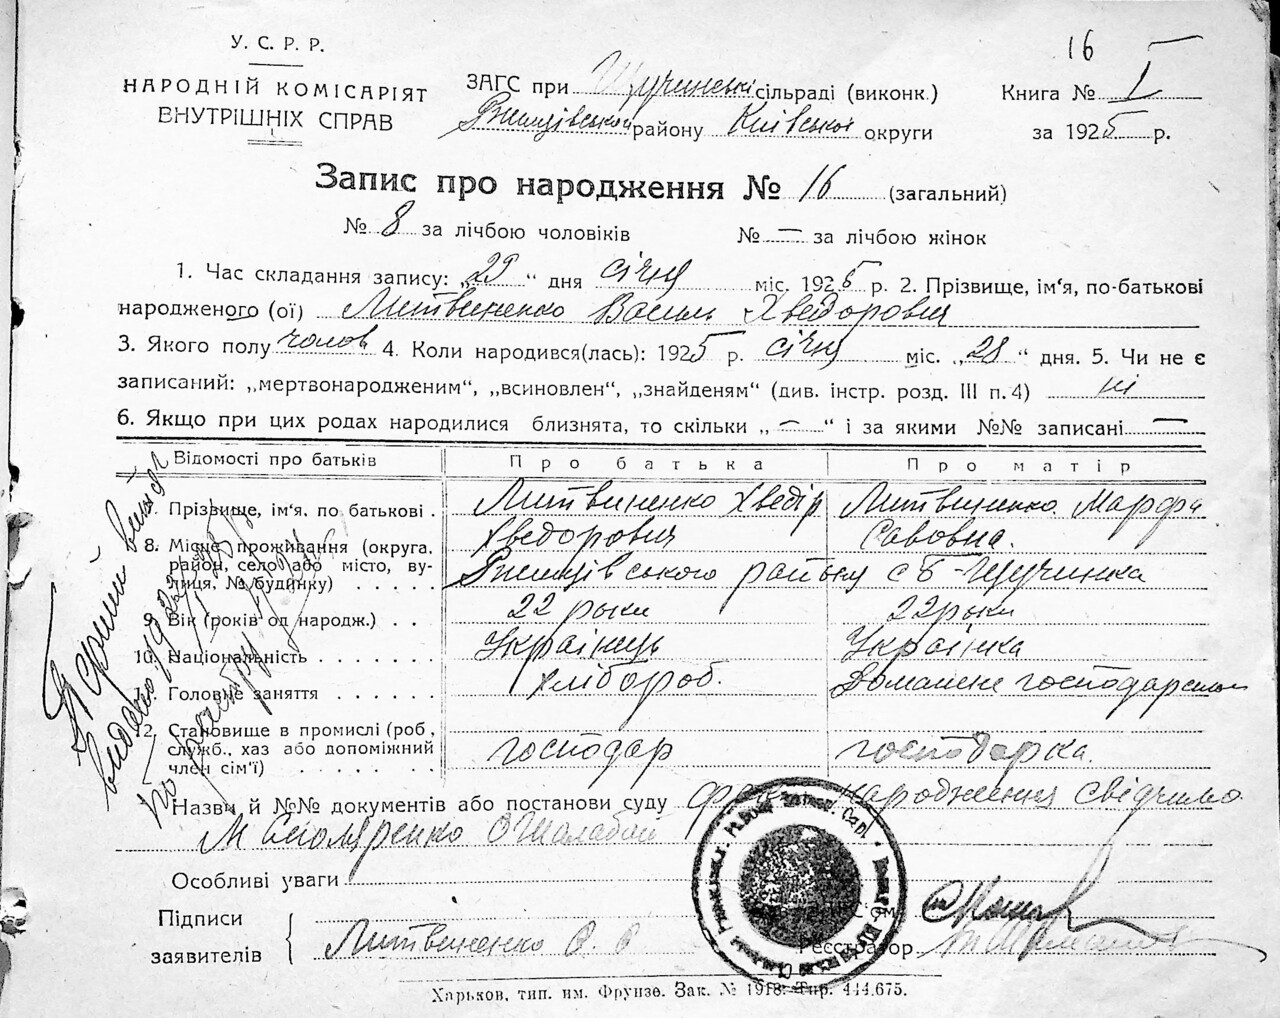 16
У. С. Р. Р.
НАРОДНІЙ КОМІСАРІЯТ
ВНУТРІШНІХ СПРАВ
ЗАГС при Щучинські сільраді (виконк.)
Ржищівської району Київської округи
Книга № I
за 1925 р.
Запис про народження № 16 (загальний)
№ 8 за лічбою чоловіків № — за лічбою жінок
1. Час складання запису: „29“ дня січня міс. 1925 р. 2. Прізвище, ім‘я, по-батькові
народженого (ої) Литвиненко Василь Хведорович
3. Якого полу чолов 4. Коли народився(лась): 1925 р. січня міс. „28“ дня. 5. Чи не є
записаний: „мертвонародженим“, „всиновлен“, „знайденям“ (див. інстр. розд. III п. 4) ні
6. Якщо при цих родах народилися близнята, то скільки „—“ і за якими №№ записані —
Відомості про батьків Про батька Про матір
7. Прізвище, ім‘я. по батькові . Литвиненко Хведір Литвиненко Марфа
Хведорович Савовна.
8. Місце проживання (округа, район, село або місто, вулиця, № будинку) Ржищівського району с Б-Щучинка
9. Вік (років од народж.) . . 22 роки 22 роки
10. Національність Українець Українка
11. Головне заняття Хлібороб. Домашнє господарство
12. Становище в промислі (роб, служб., хаз або допоміжний член сім‘ї) господар господарка.
Назви й №№ документів або постанови суду народження свідчимо
М Столяренко О Шалабай
Особливі уваги
Підписи
заявителів
Литвиненко
Реєстратор
Харьков, тип. им. Фрунзе. Зак. № 1918. Тир. 444.675.